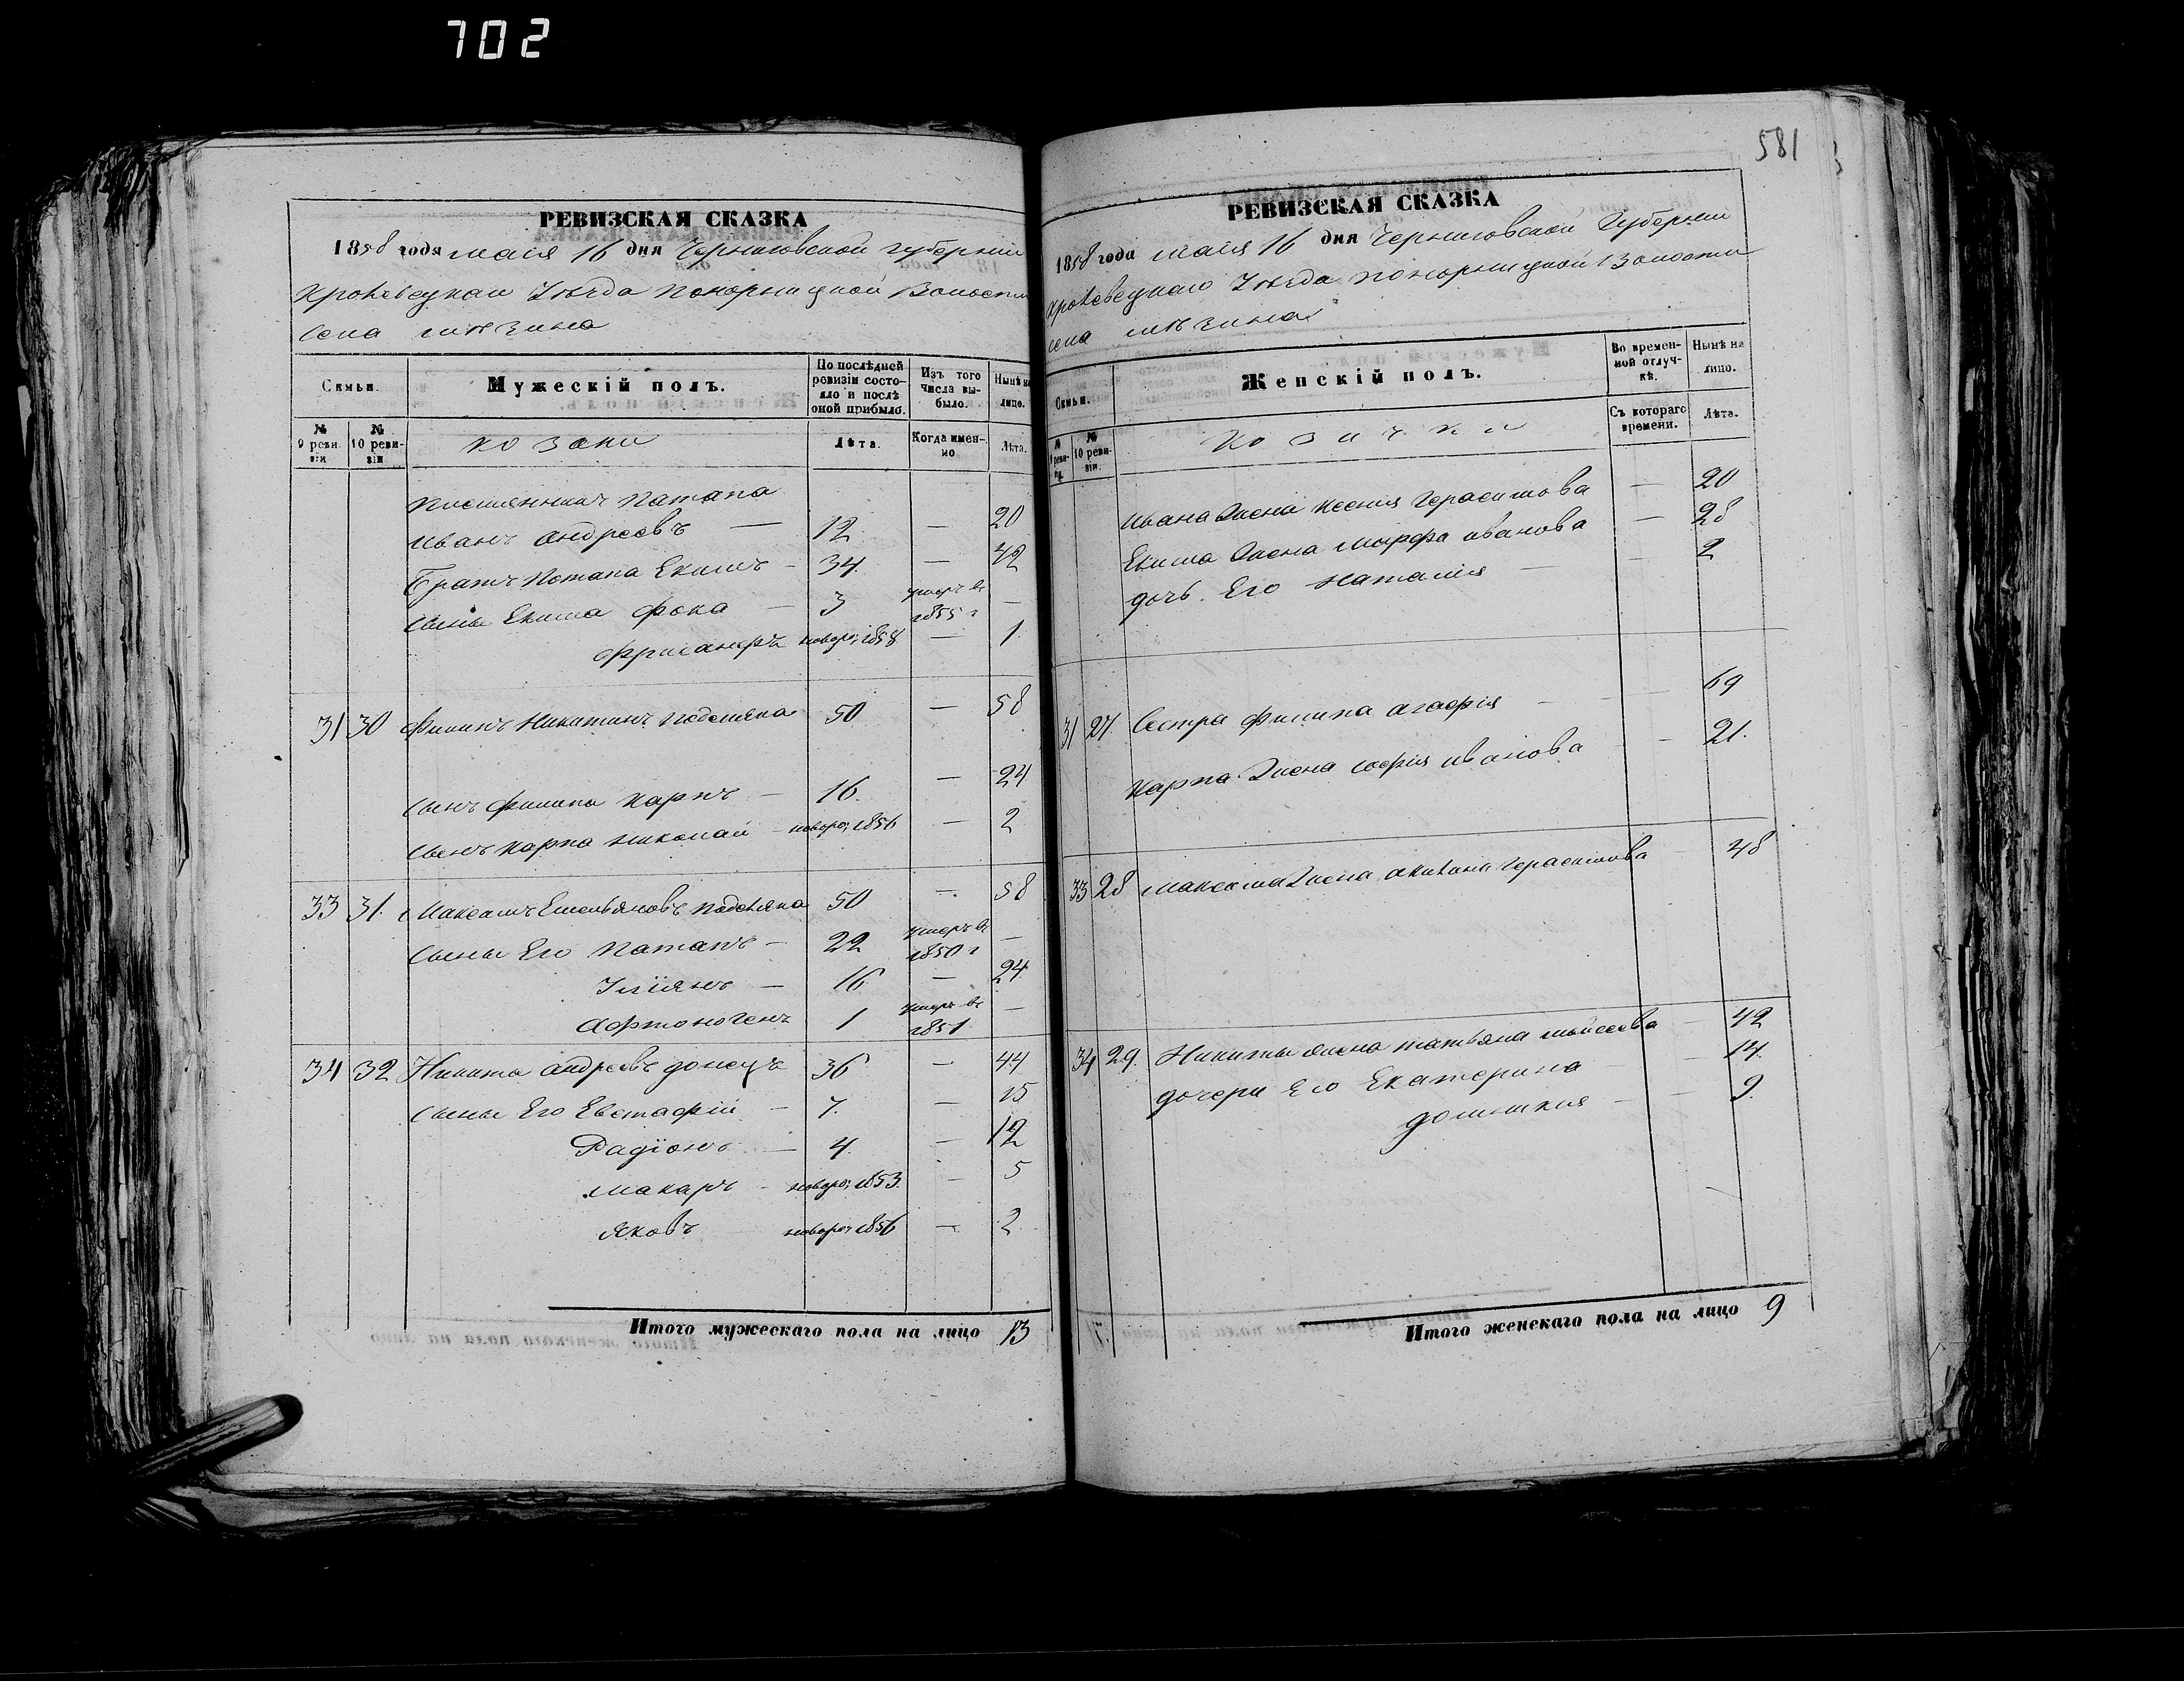 702
581
РЕВИЗСКАЯ СКАЗКА
1858 года маія 16 дня Черниговской губерніи
Кролевецкаго Уѣзда Понорницкой Волости
села Мѣзина
Семьи. Мужескій полъ. По послѣдней ревизіи состояло и послѣ оной прибыло. Изъ того числа выбыло. Нынѣ на лицо.
№ 9 ревизіи № 10 ревизіи козаки Лѣта. Когда именно Лѣта.
Племянникъ Патапа
Иванъ Андреевъ — 12 — 20
Братъ Потапа Екимъ - 34 — 42
Сыны Екима Фока — 3 умеръ въ 1855 г —
новорож 1858 — 1
31 30 Филипъ Никитинъ Подоляка 50 — 58
Сынъ Филипа Карпъ — 16. — 24
Сынъ Карпа Николай - новорож 1856 — 2
33 31. Максимъ Емельяновъ Подоляка 50 — 58
Сыны Его Патапъ — 22 умеръ въ 1850 г —
Уліянъ — 16 — 24
Афтоногенъ 1 умеръ въ 1851. —
34 32 Никита Андреевъ Донецъ 36 — 44
Сыны Его Евстафій — 7. — 15
Радіонъ — 4. — 12
Макаръ - новорож 1853. — 5
Яковъ новорож 1856 — 2
Итого мужескаго пола на лицо 13
РЕВИЗСКАЯ СКАЗКА
1858 года маія 16 дня Черниговской Губерніи
Кролевецкаго Уѣзда Понорницкой Волости
села Мѣзина
Семьи. Женскій полъ. Во временной отлучкѣ. Нынѣ на лицо.
№ 9 ревизіи № 10 ревизіи. козачки Съ котораго времени. Лѣта.
Ивана Жена Ксенія Герасимова — 20
Екима Жена Марфа Иванова — 28
дочь Его Наталія — — 2
31 27. Сестра Филипа Агафія — — 69
Карпа Жена Софія Иванова — 21.
33 28 Максима Жена Акилина Герасимова — 48
34 29. Никиты жена Татьяна Мойсеева — 42
дочери Его Екатерина — 14.
Домникия — — 9.
Итого женскаго пола на лицо 9